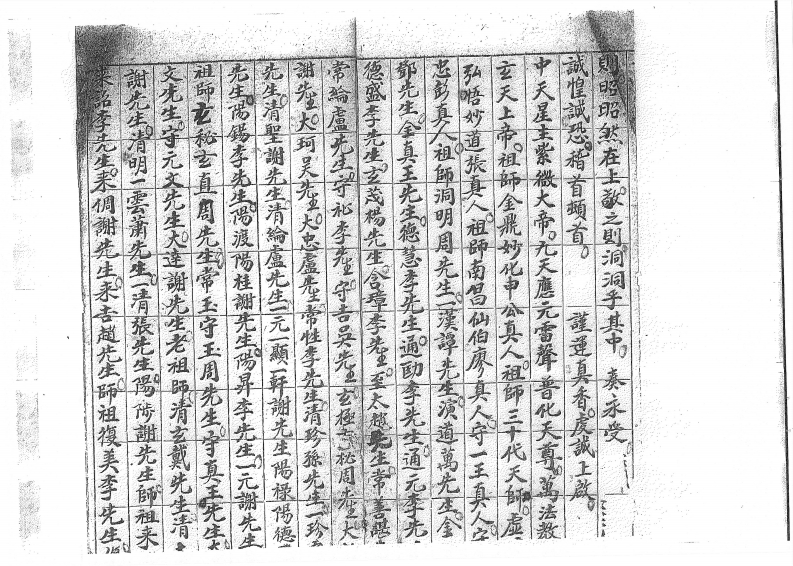 則昭昭然在上敬之則洞洞乎其中。奏永受
誠惶誠恐。稽首頓首。謹運真香。虔誠上啟。
中天星主紫微大帝。九天應元雷聲普化天尊。萬法教
玄天上帝。祖師金鼎妙化申公真人。祖師三十代天師。虛
弘悟妙道張真人。祖師南昌仙伯廖真人。守一王真人。守
忠彭真人。祖師洞明周先生。一漢譚先生。演道萬先生。金
鄧先生。金真王先生。德慧李先生。通勔李先生。通元李先
德盛李先生。玄茂楊先生。含璋李先生。至太趙先生。常善
常綸盧先生。守礼李先生。守吉吳先生。玄極 松周先生。大
謝先生。大珂吳先生。大忠盧先生。常性李先生。清珍孫先生。一珍
先生。清聖謝先生。清綸盧先生。一元一顯一軒謝先生。陽祿陽德
先生。陽錫李先生。陽渡陽桂謝先生。陽昇李先生。一元謝先生
祖師玄秘玄直周先生。常玉守玉周先生。守真王先生。大
文先生。守元文先生。大達謝先生。老祖師清玄戴先生。清
謝先生。清明一雲蕭先生。一清張先生。陽陟謝先生。師祖來
來詔李先生。來倜謝先生。來吉趙先生。師祖復美李先生。